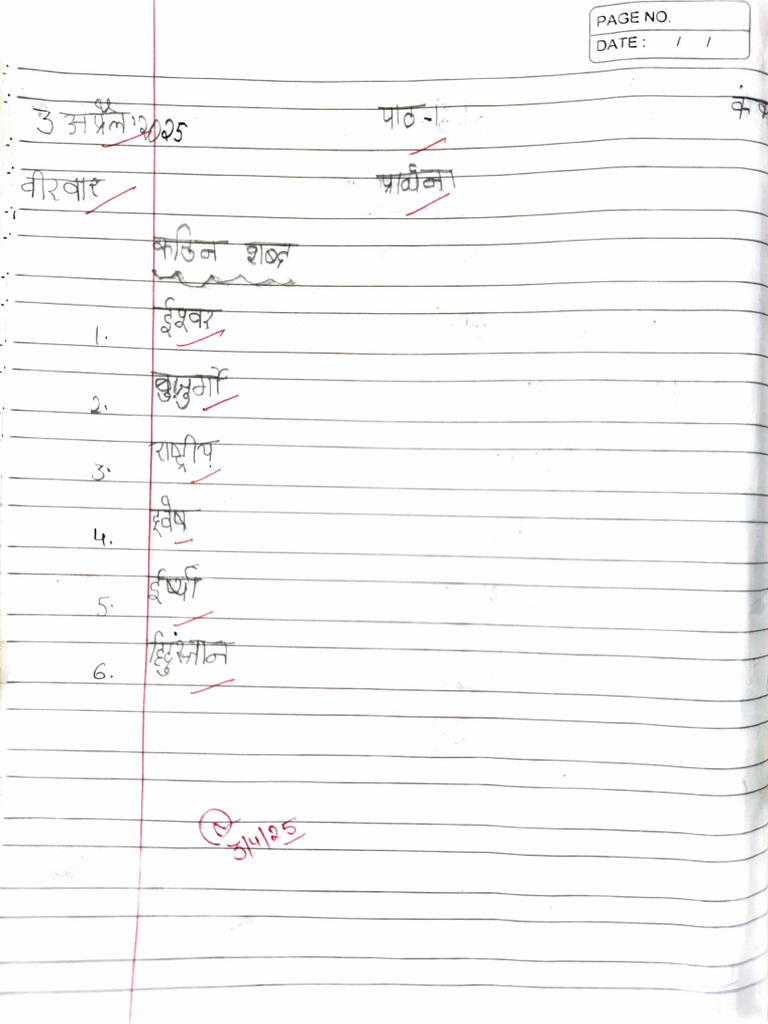 PAGE NO.
DATE: / /
3 अप्रैल '2025 पाठ -1
वीरवार प्रार्थना
कठिन शब्द
1. ईश्वर
2. बुजुर्गों
3. राष्ट्रीय
4. द्वेष
5. ईर्ष्या
6. हिंदुस्तान
3/4/25